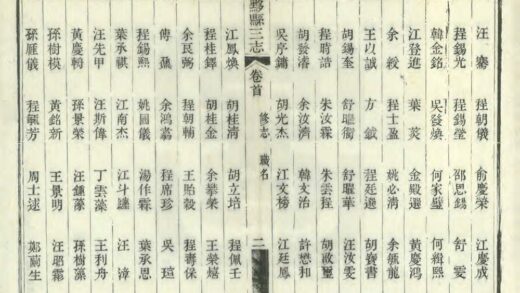 汪騫 程朝儀 俞慶榮 江慶成
程錫光 程錫瑩 邵思錫 舒雯
韓金銘 吳發煥 何家 何緝熙
江登進 葉葵 金殿選 黃慶鴻
余綬 程士盈 姚必清 余毓龍
王以誠 方鉞 程廷選 胡賚書
胡錫奎 舒衢 舒華 汪汝雯
程聘誥 朱汝霖 朱雲程 胡啟
胡發濬 余汝濟 韓文治 許懋和
吳序鏞 胡光杰 江文榜 江廷鳳
黟縣三志 卷首 修志 職名 二
江鳳煥 胡桂清 胡立培 程佩壬
程桂鐸 胡桂金 余攀榮 王榮
余艮弼 程朝輔 王貽穀 程壽保
傅 余鴻翥 程席珍 吳瑄
程錫熙 姚國儀 湯作霖 葉承恩
葉承祺 江南杰 江斗 汪漳
汪先甲 汪斯偉 丁雲藻 王利舟
黃慶 孫景榮 汪鍾藻 孫樹藻
孫樹模 黃銘新 王景明 汪昭霜
孫雁儀 程毓芳 周士逑 鄭蘭生